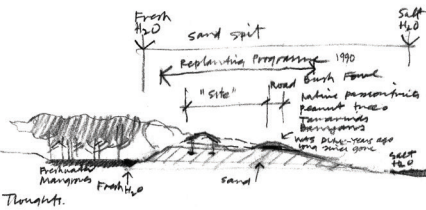 Fresh
H2O
Salt
H2O
sand spit
Replanting Programme 1990
"Site"
Road
Bush Fowl
Native passionfruits
Peanut trees
Tamarinds
Banyans
was dune - years ago
long since gone
Freshwater
Mangroves
Fresh H2O
Sand
Salt
H2O
Thoughts.